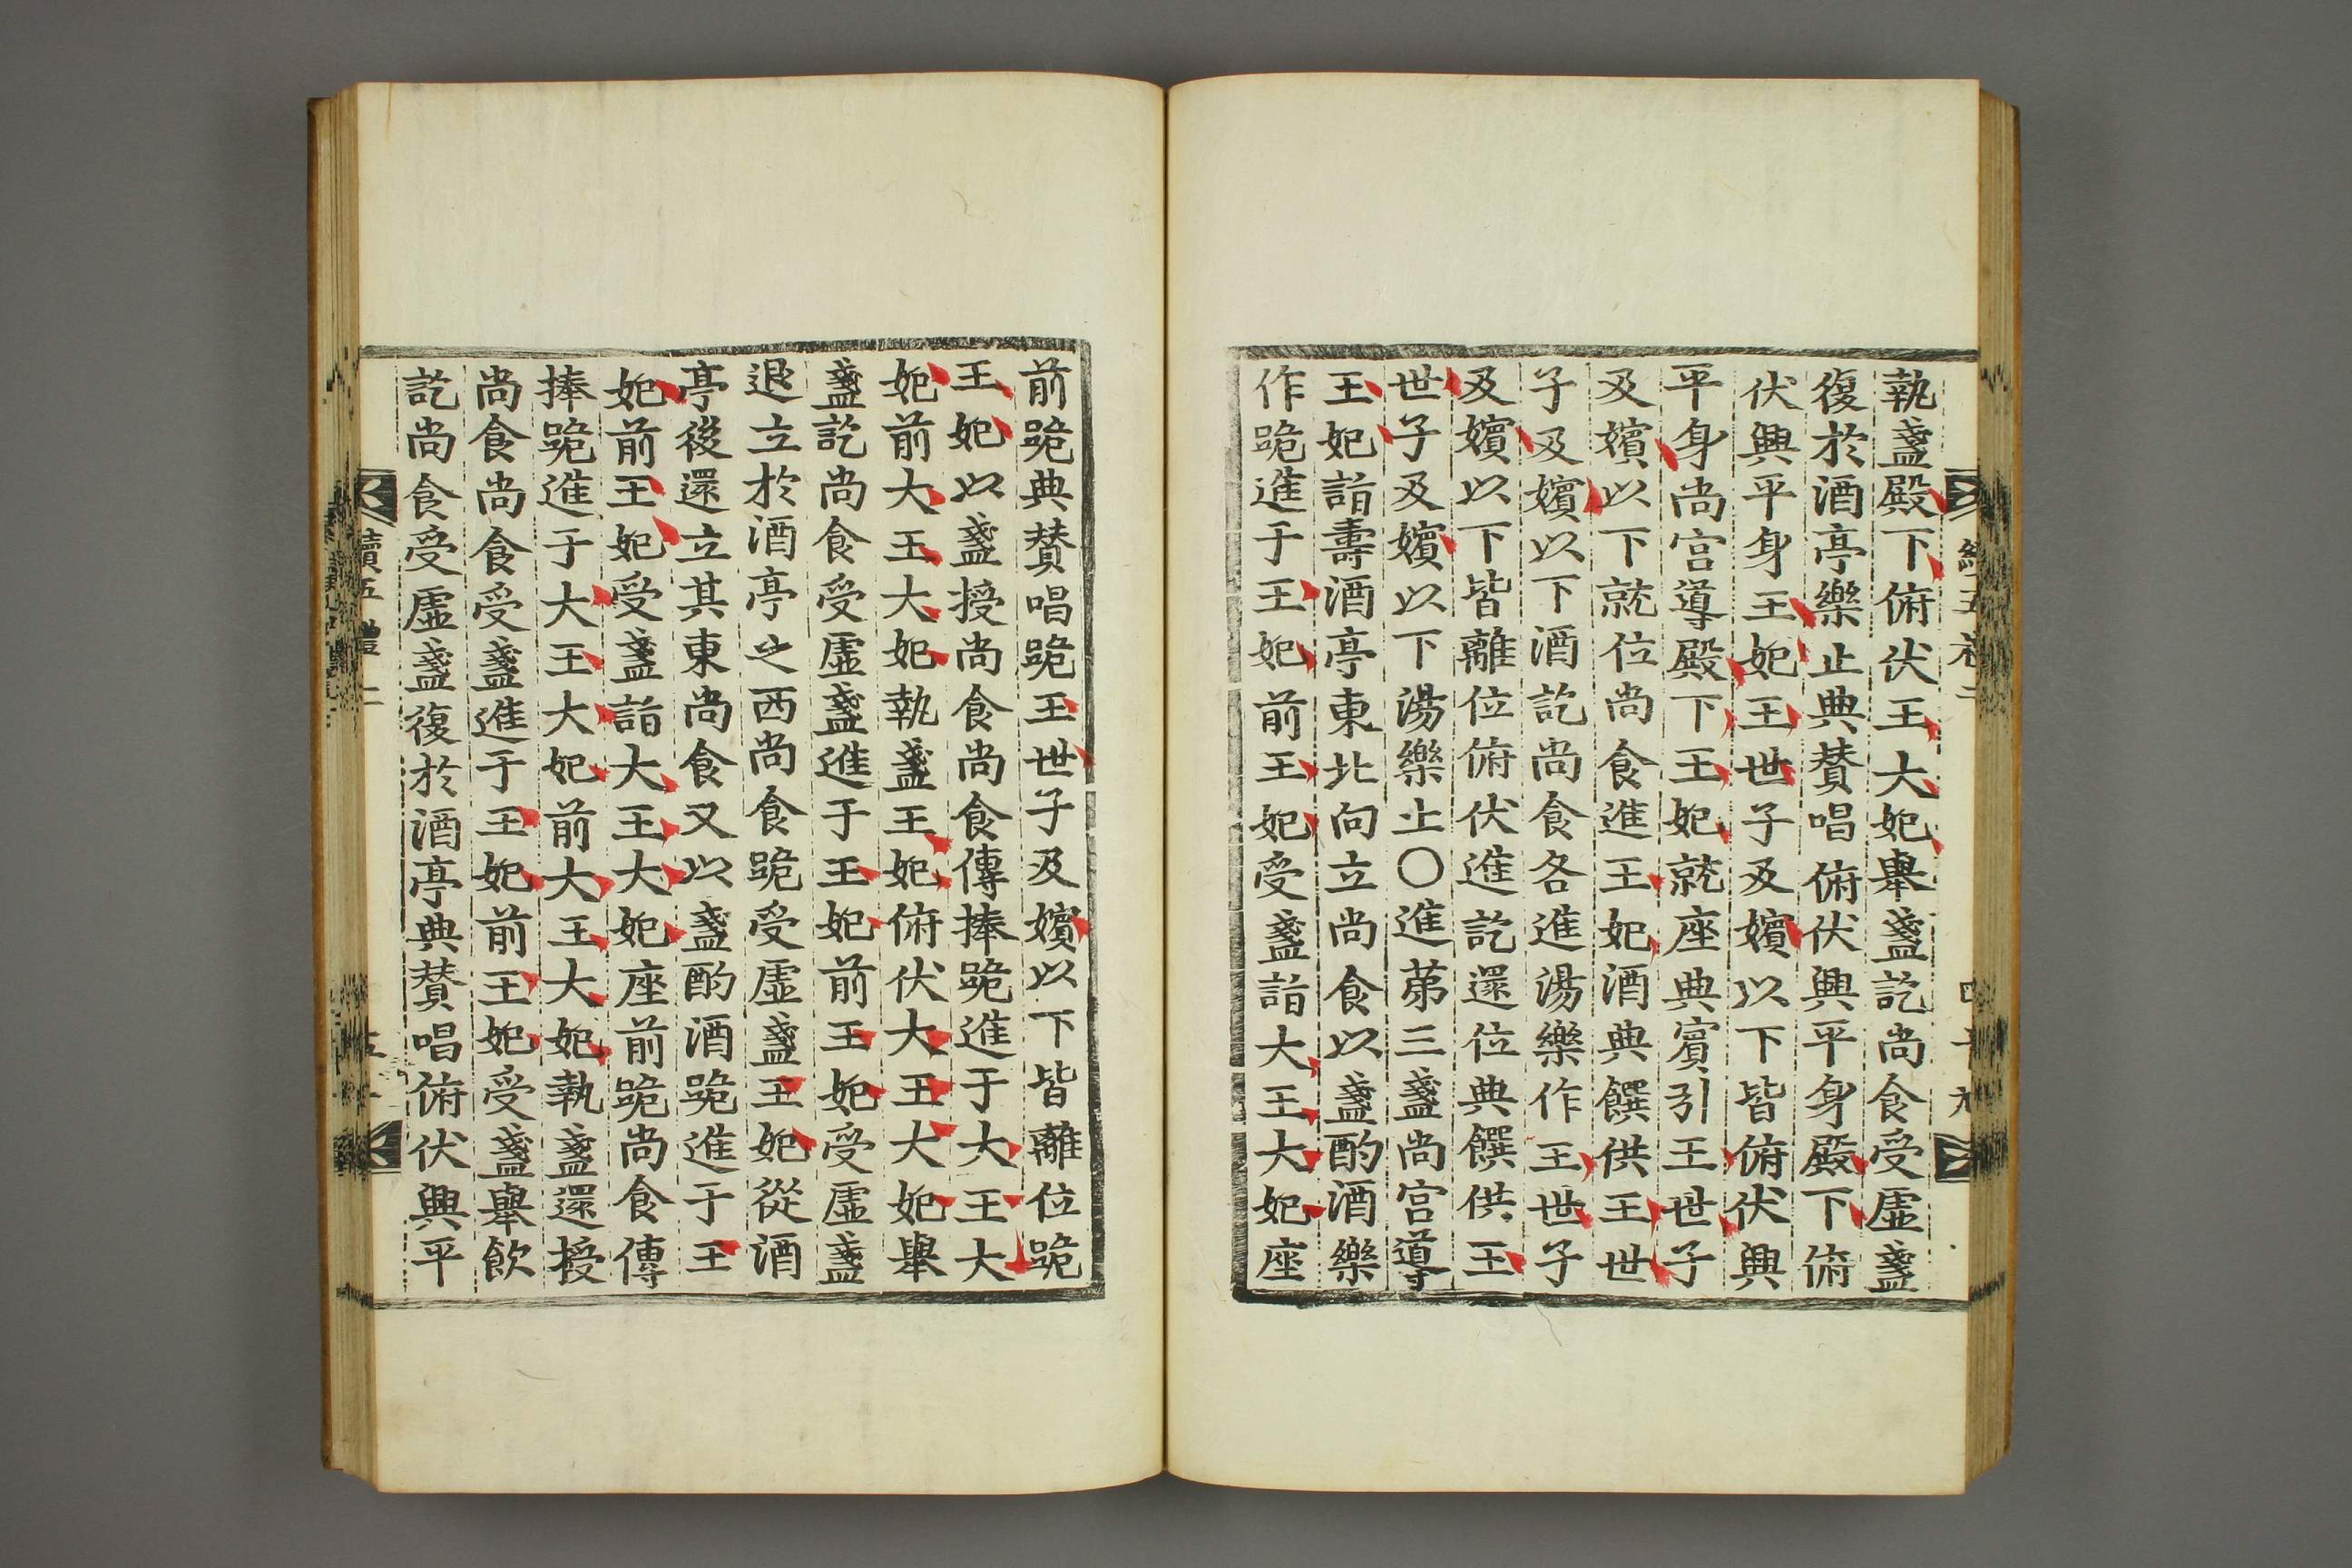 執盞殿下俯伏王大妃舉盞訖尚食受虛盞
復於酒亭樂止典贊唱俯伏興平身殿下俯
伏興平身王妃王世子及嬪以下皆俯伏興
平身尚宮導殿下王妃就座典賓引王世子
及嬪以下就位尚食進王妃酒典饌供王世
子及嬪以下酒訖尚食各進湯樂作王世子
及嬪以下皆離位俯伏進訖還位典饌供王
世子及嬪以下湯樂止〇進第三盞尚宮導
王妃詣壽酒亭東北向立尚食以盞酌酒樂
作跪進于王妃前王妃受盞詣大王大妃座
前跪典贊唱跪王世子及嬪以下皆離位跪
王妃以盞授尚食尚食傳捧跪進于大王大
妃前大王大妃執盞王妃俯伏大王大妃舉
盞訖尚食受虛盞進于王妃前王妃受虛盞
退立於酒亭之西尚食跪受虛盞王妃從酒
亭後還立其東尚食又以盞酌酒跪進于王
妃前王妃受盞詣大王大妃座前跪尚食傳
捧跪進于大王大妃前大王大妃執盞還授
尚食尚食受盞進于王妃前王妃受盞舉飲
訖尚食受虛盞復於酒亭典贊唱俯伏興平